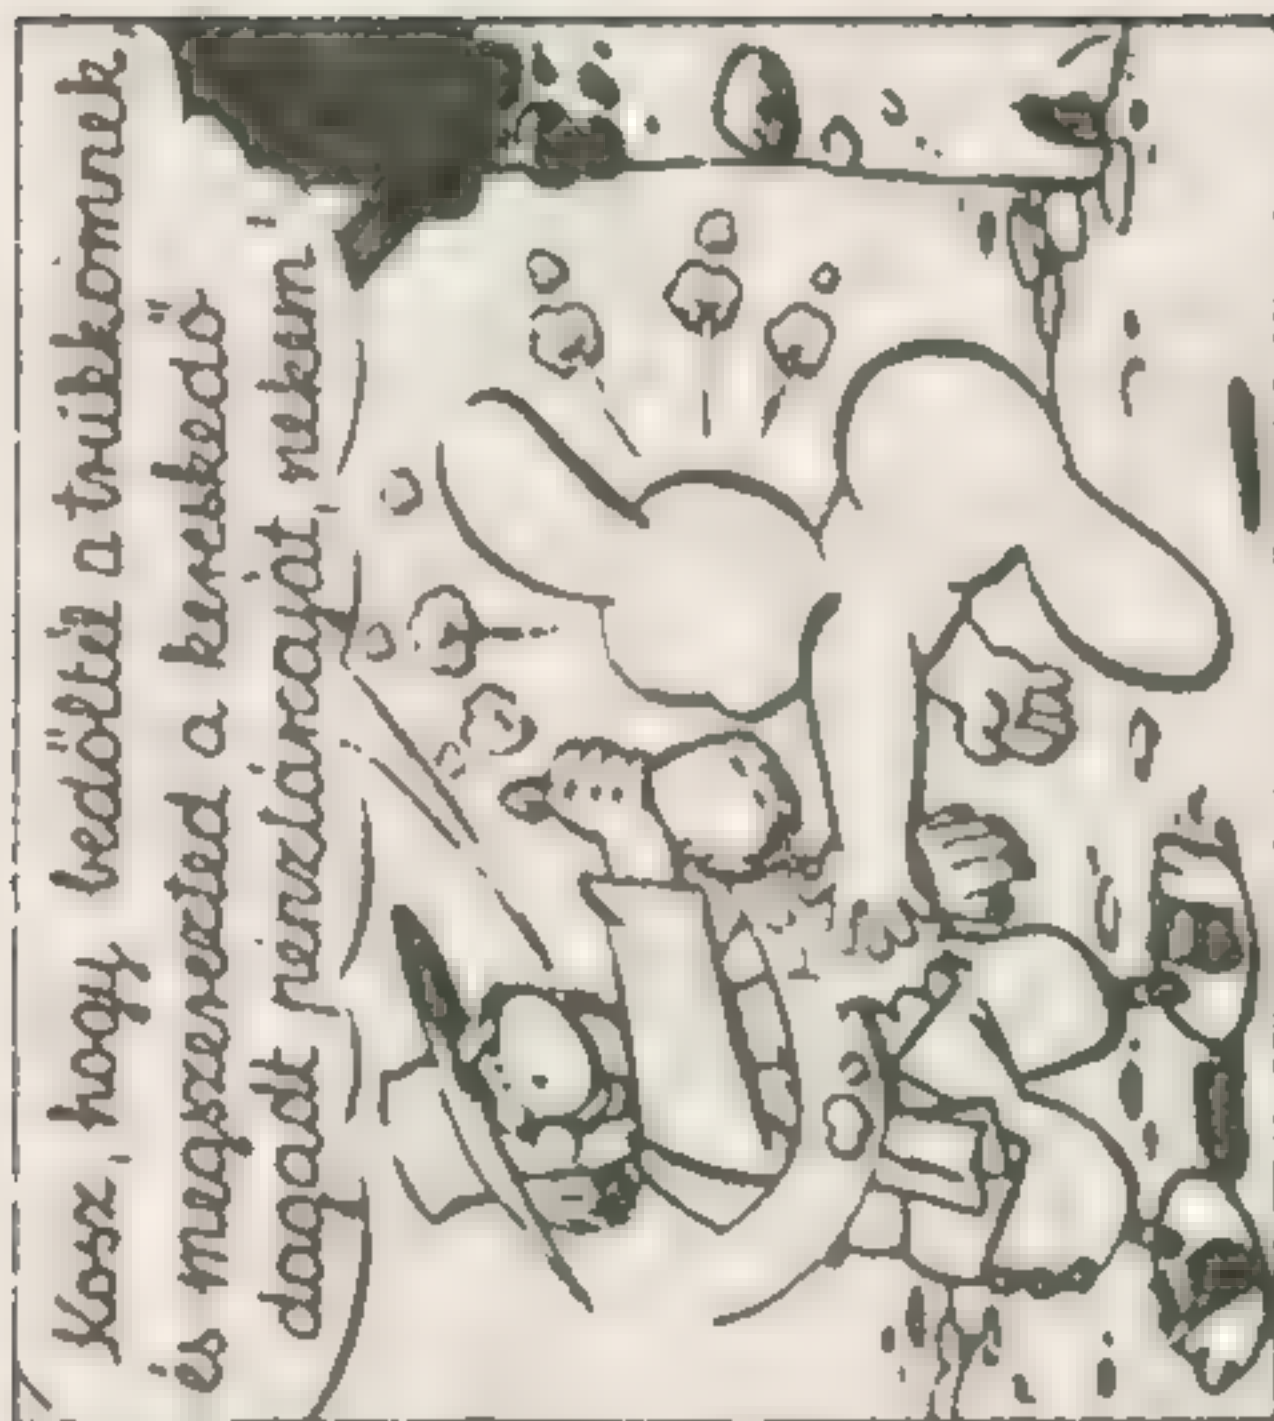 Kosz, hogy bedőltél a trükkömnek
és megszerezted a kereskedő
dagadt pénztárcáját, nekem